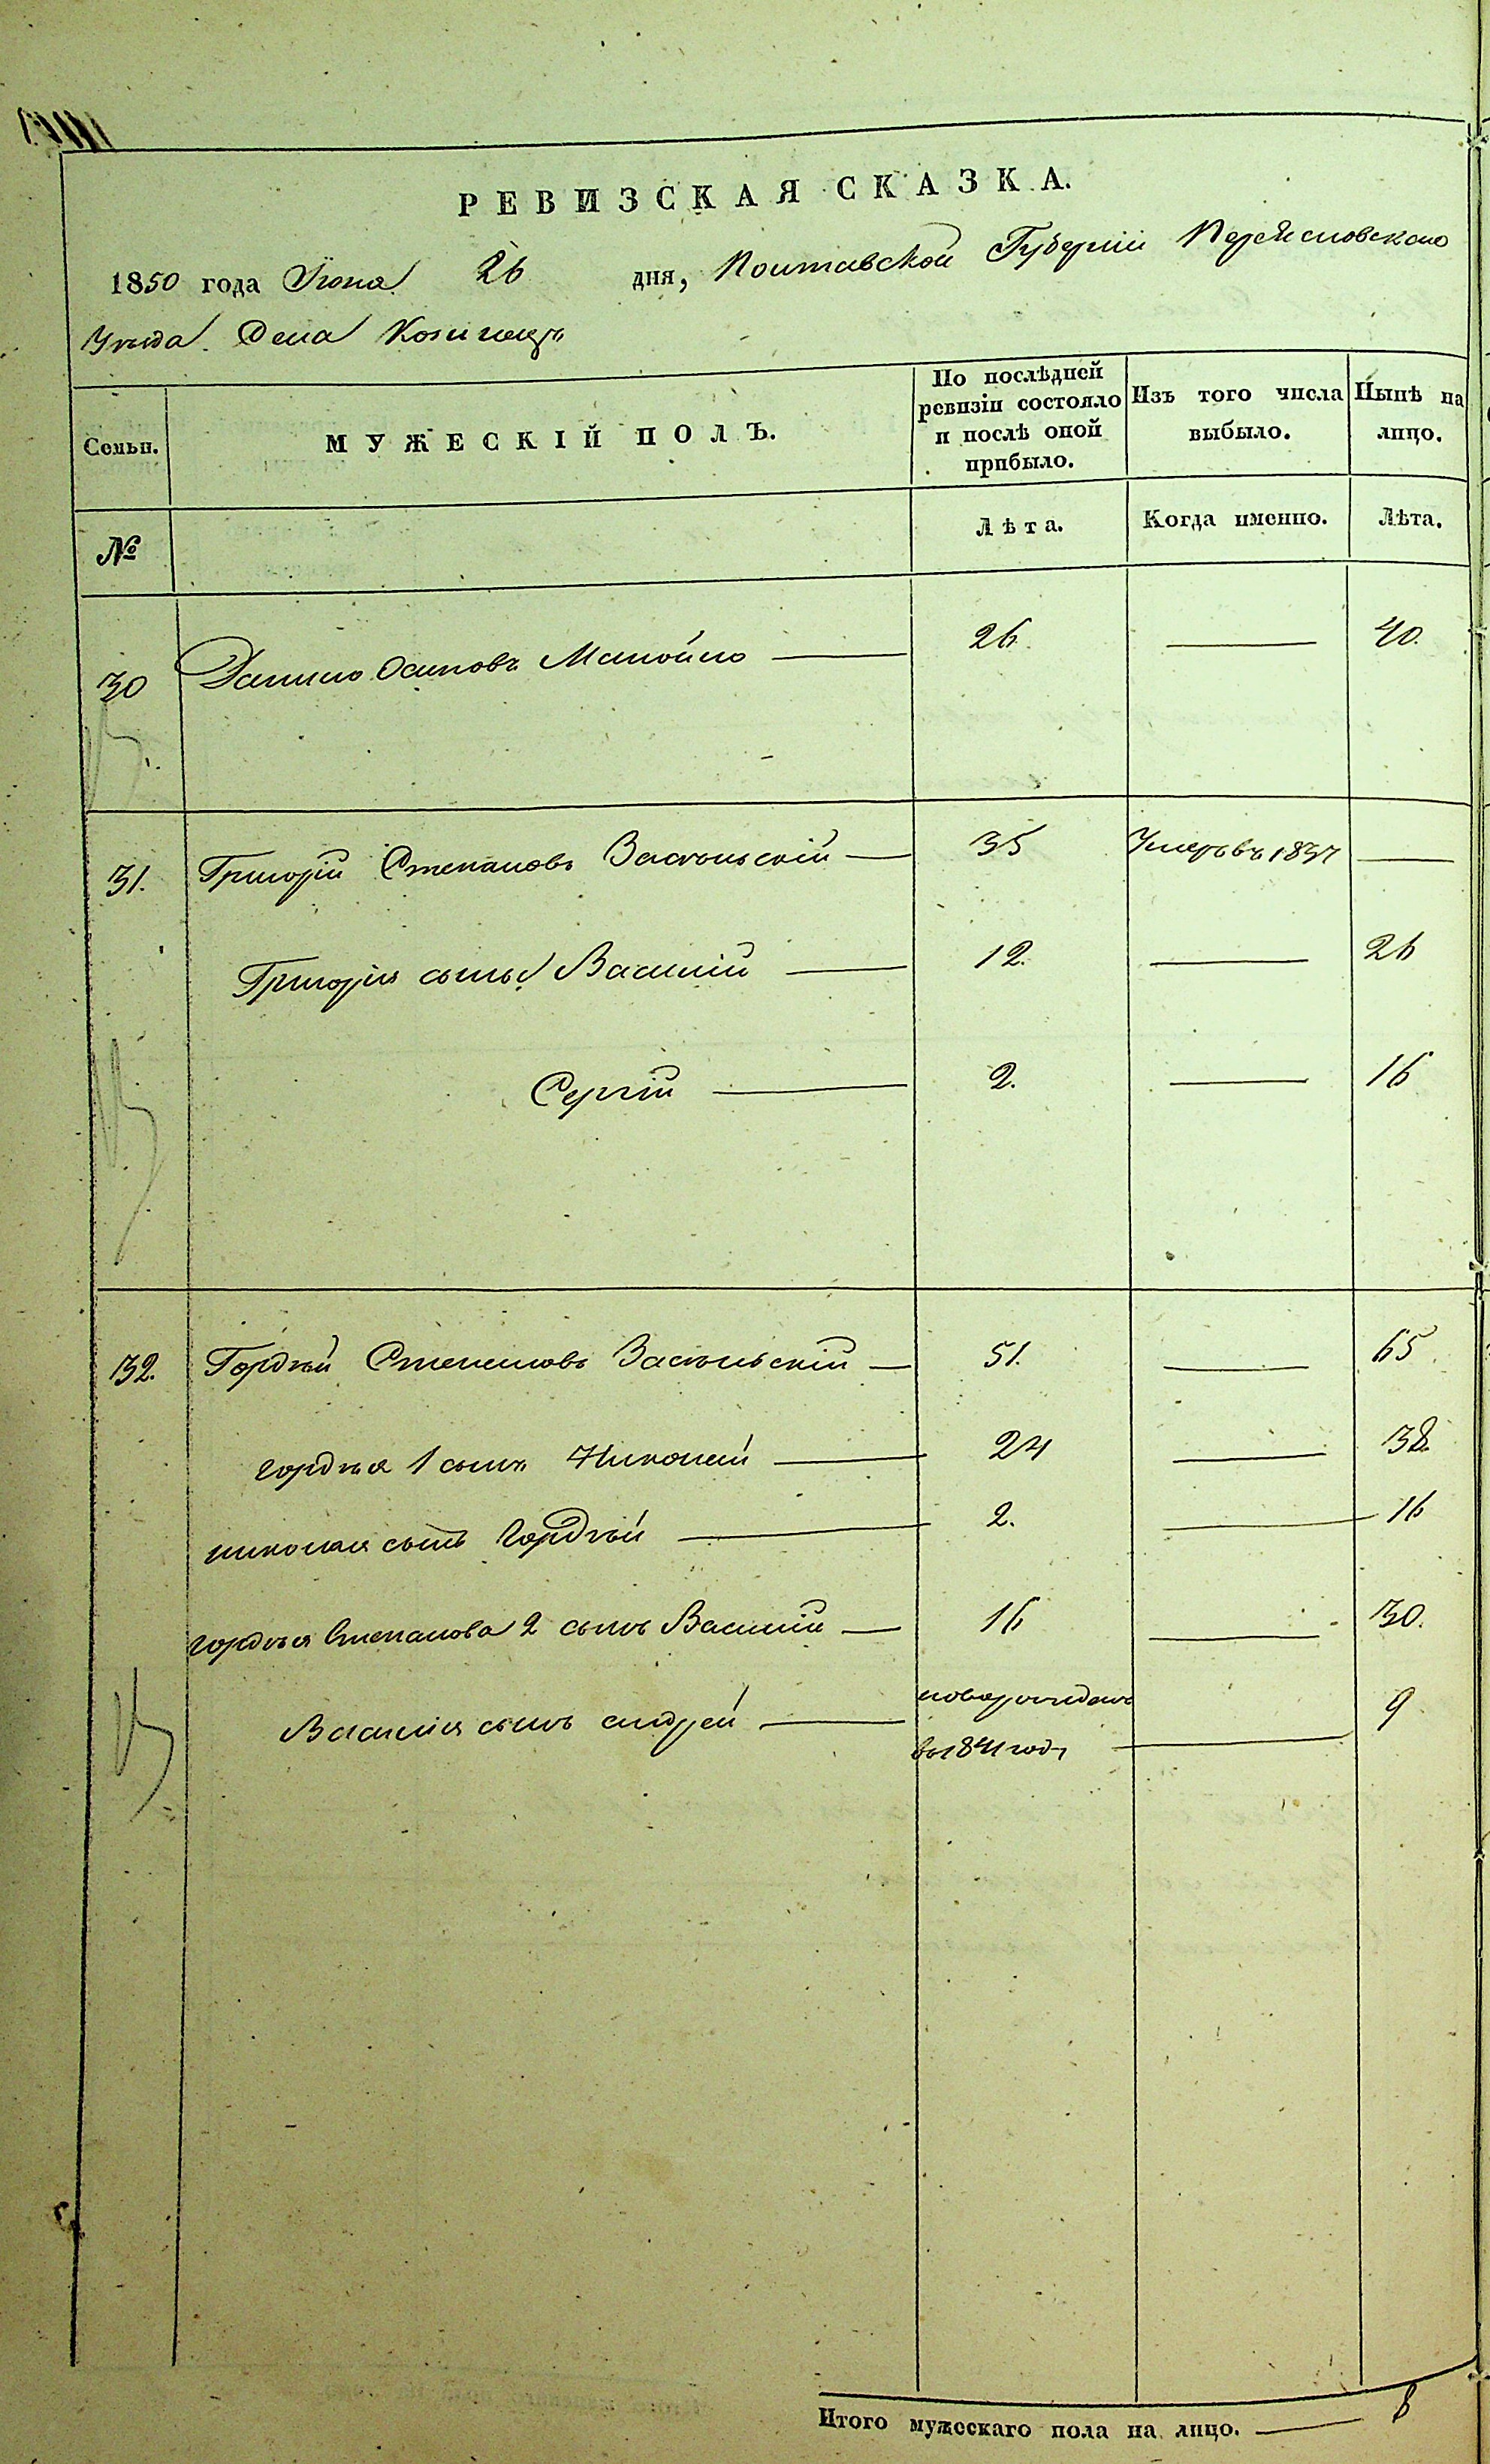 РЕВИЗСКАЯ СКАЗКА.
1850 года Июня 26 дня, Полтавской Губерніи Переясловскаго
Уѣзда Села Козинецъ
Семьи.
МУЖЕСКІЙ ПОЛЪ.
По послѣдней ревизіи состояло и послѣ оной прибыло.
Изъ того числа выбыло.
Нынѣ на лицо.
№
Лѣта.
Когда именно.
Лѣта.
30 Данило Осиповъ Манойло — 26. — 40.
31. Григорій Степановъ — 35 Умеръ въ 1837 —
Григорія сынъ Василій — 12. — 26
Сергій — 2. — 16
32. Гордѣй Степановъ — 51. — 65
гордѣя 1 сынъ Николай — 24 — 38.
николая сынъ Гордѣй — 2. — 16
гордѣя Степанова 2 сынъ Василій — 16 — 30.
Василія сынъ андрей — новорожденъ
въ 1841 году — 9
Итого мужескаго пола на лицо. — 8